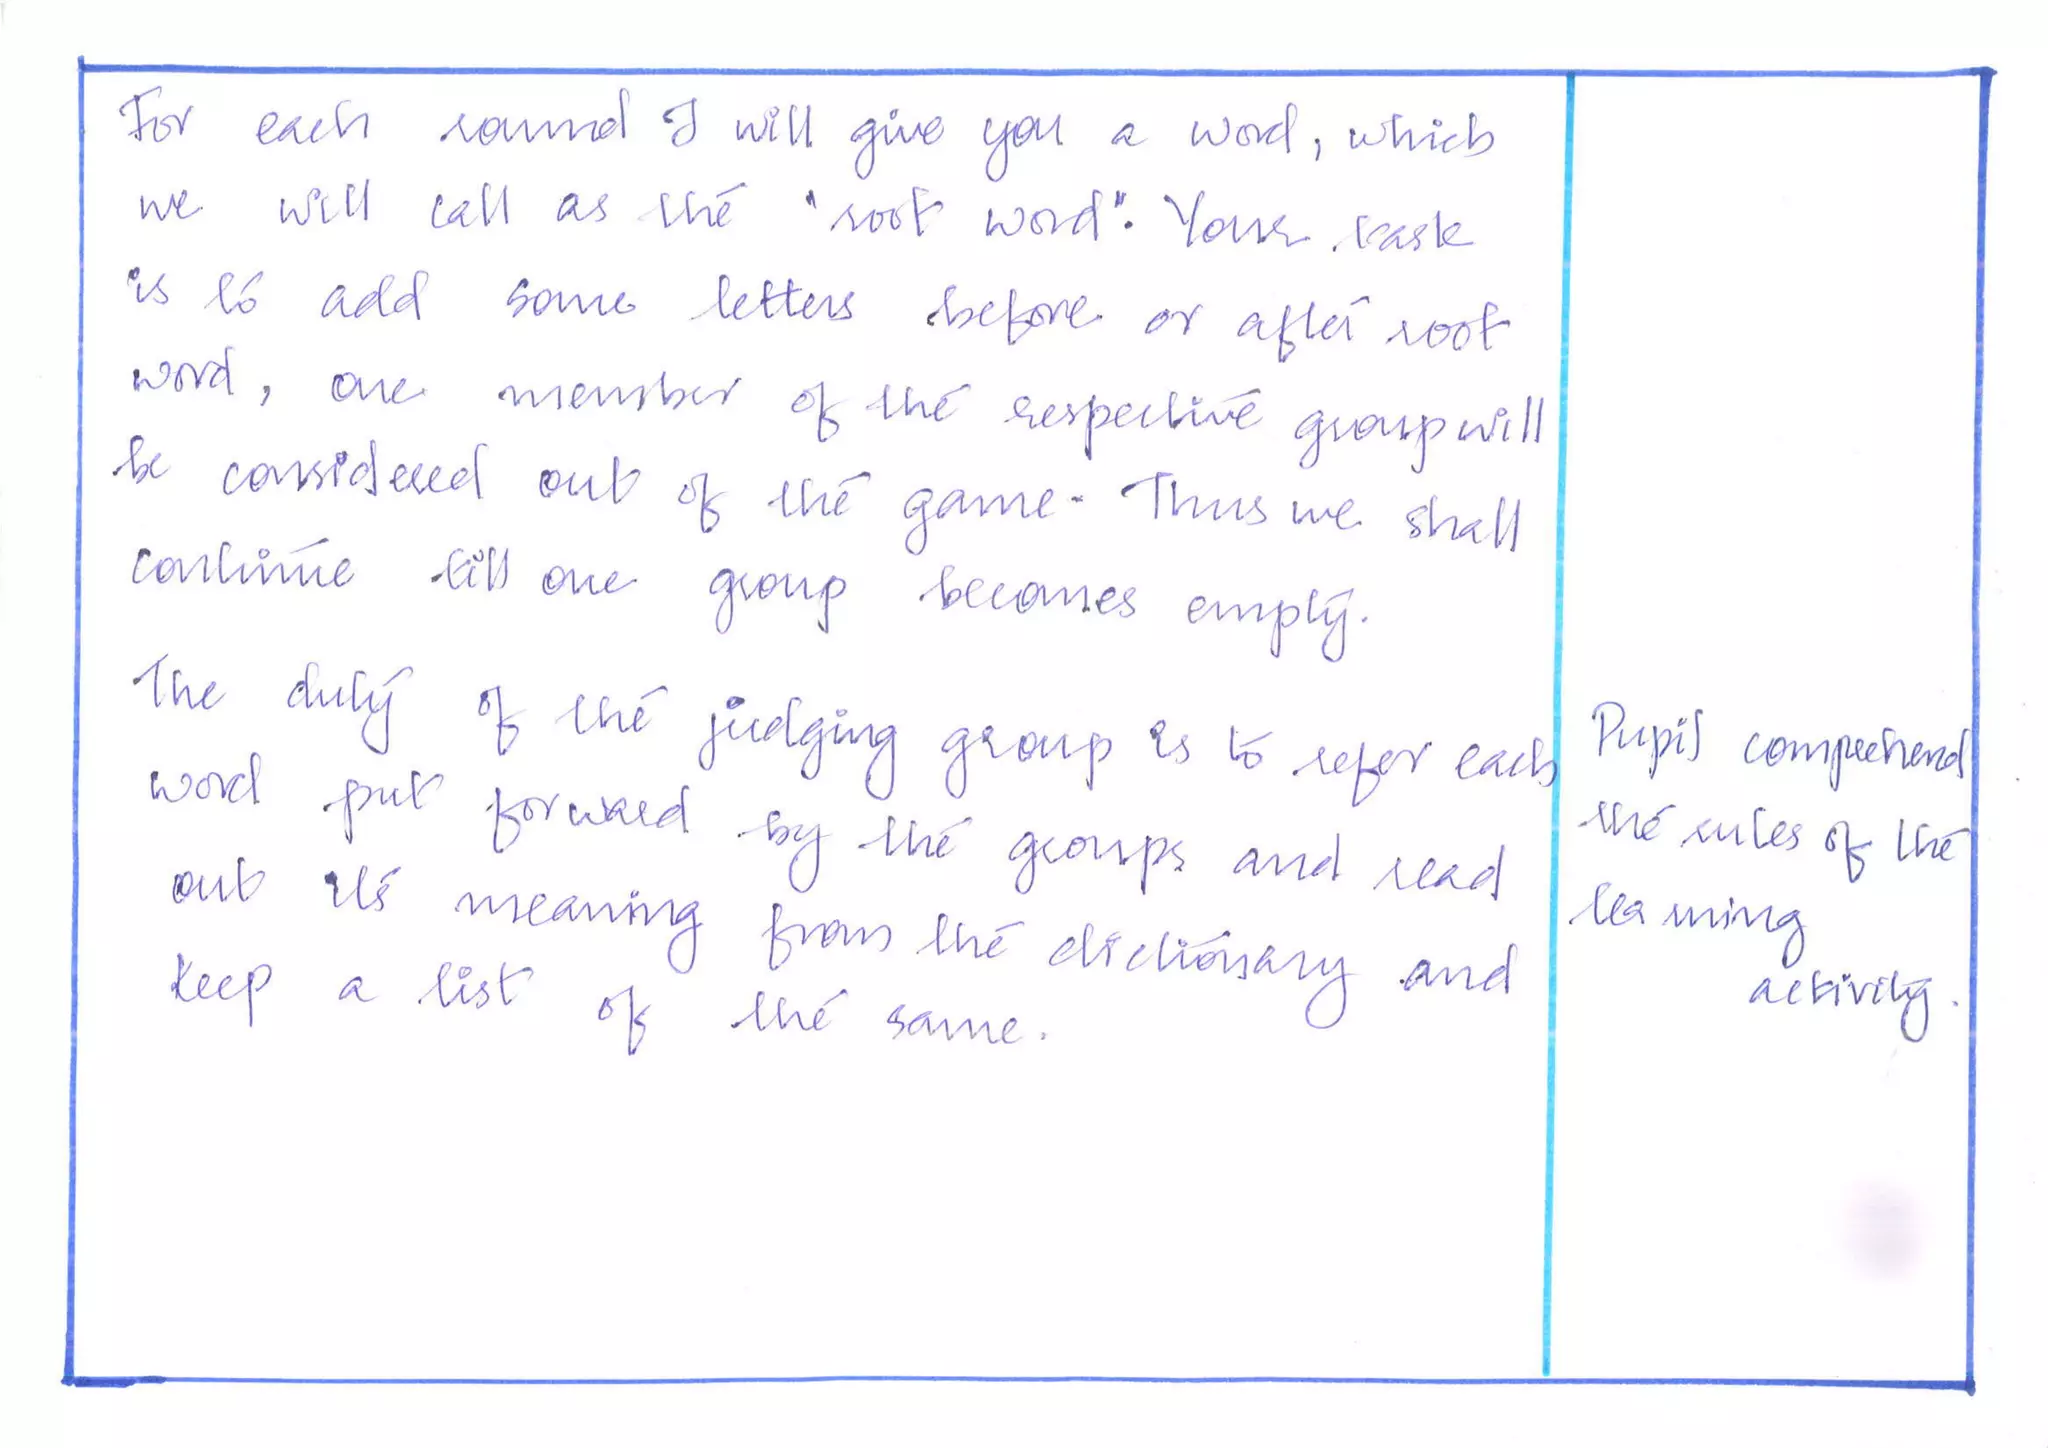 For each round I will give you a word, which
we will call as the "root word". Your task
is to add some letters before or after root
word, one member of the respective group will
be considered out of the game. Thus we shall
continue till one group becomes empty.
The duty of the judging group is to refer each
word put forward by the groups and read
out its meaning from the dictionary and
keep a list of the same.
Pupil comprehend
the rules of the
learning
activity.